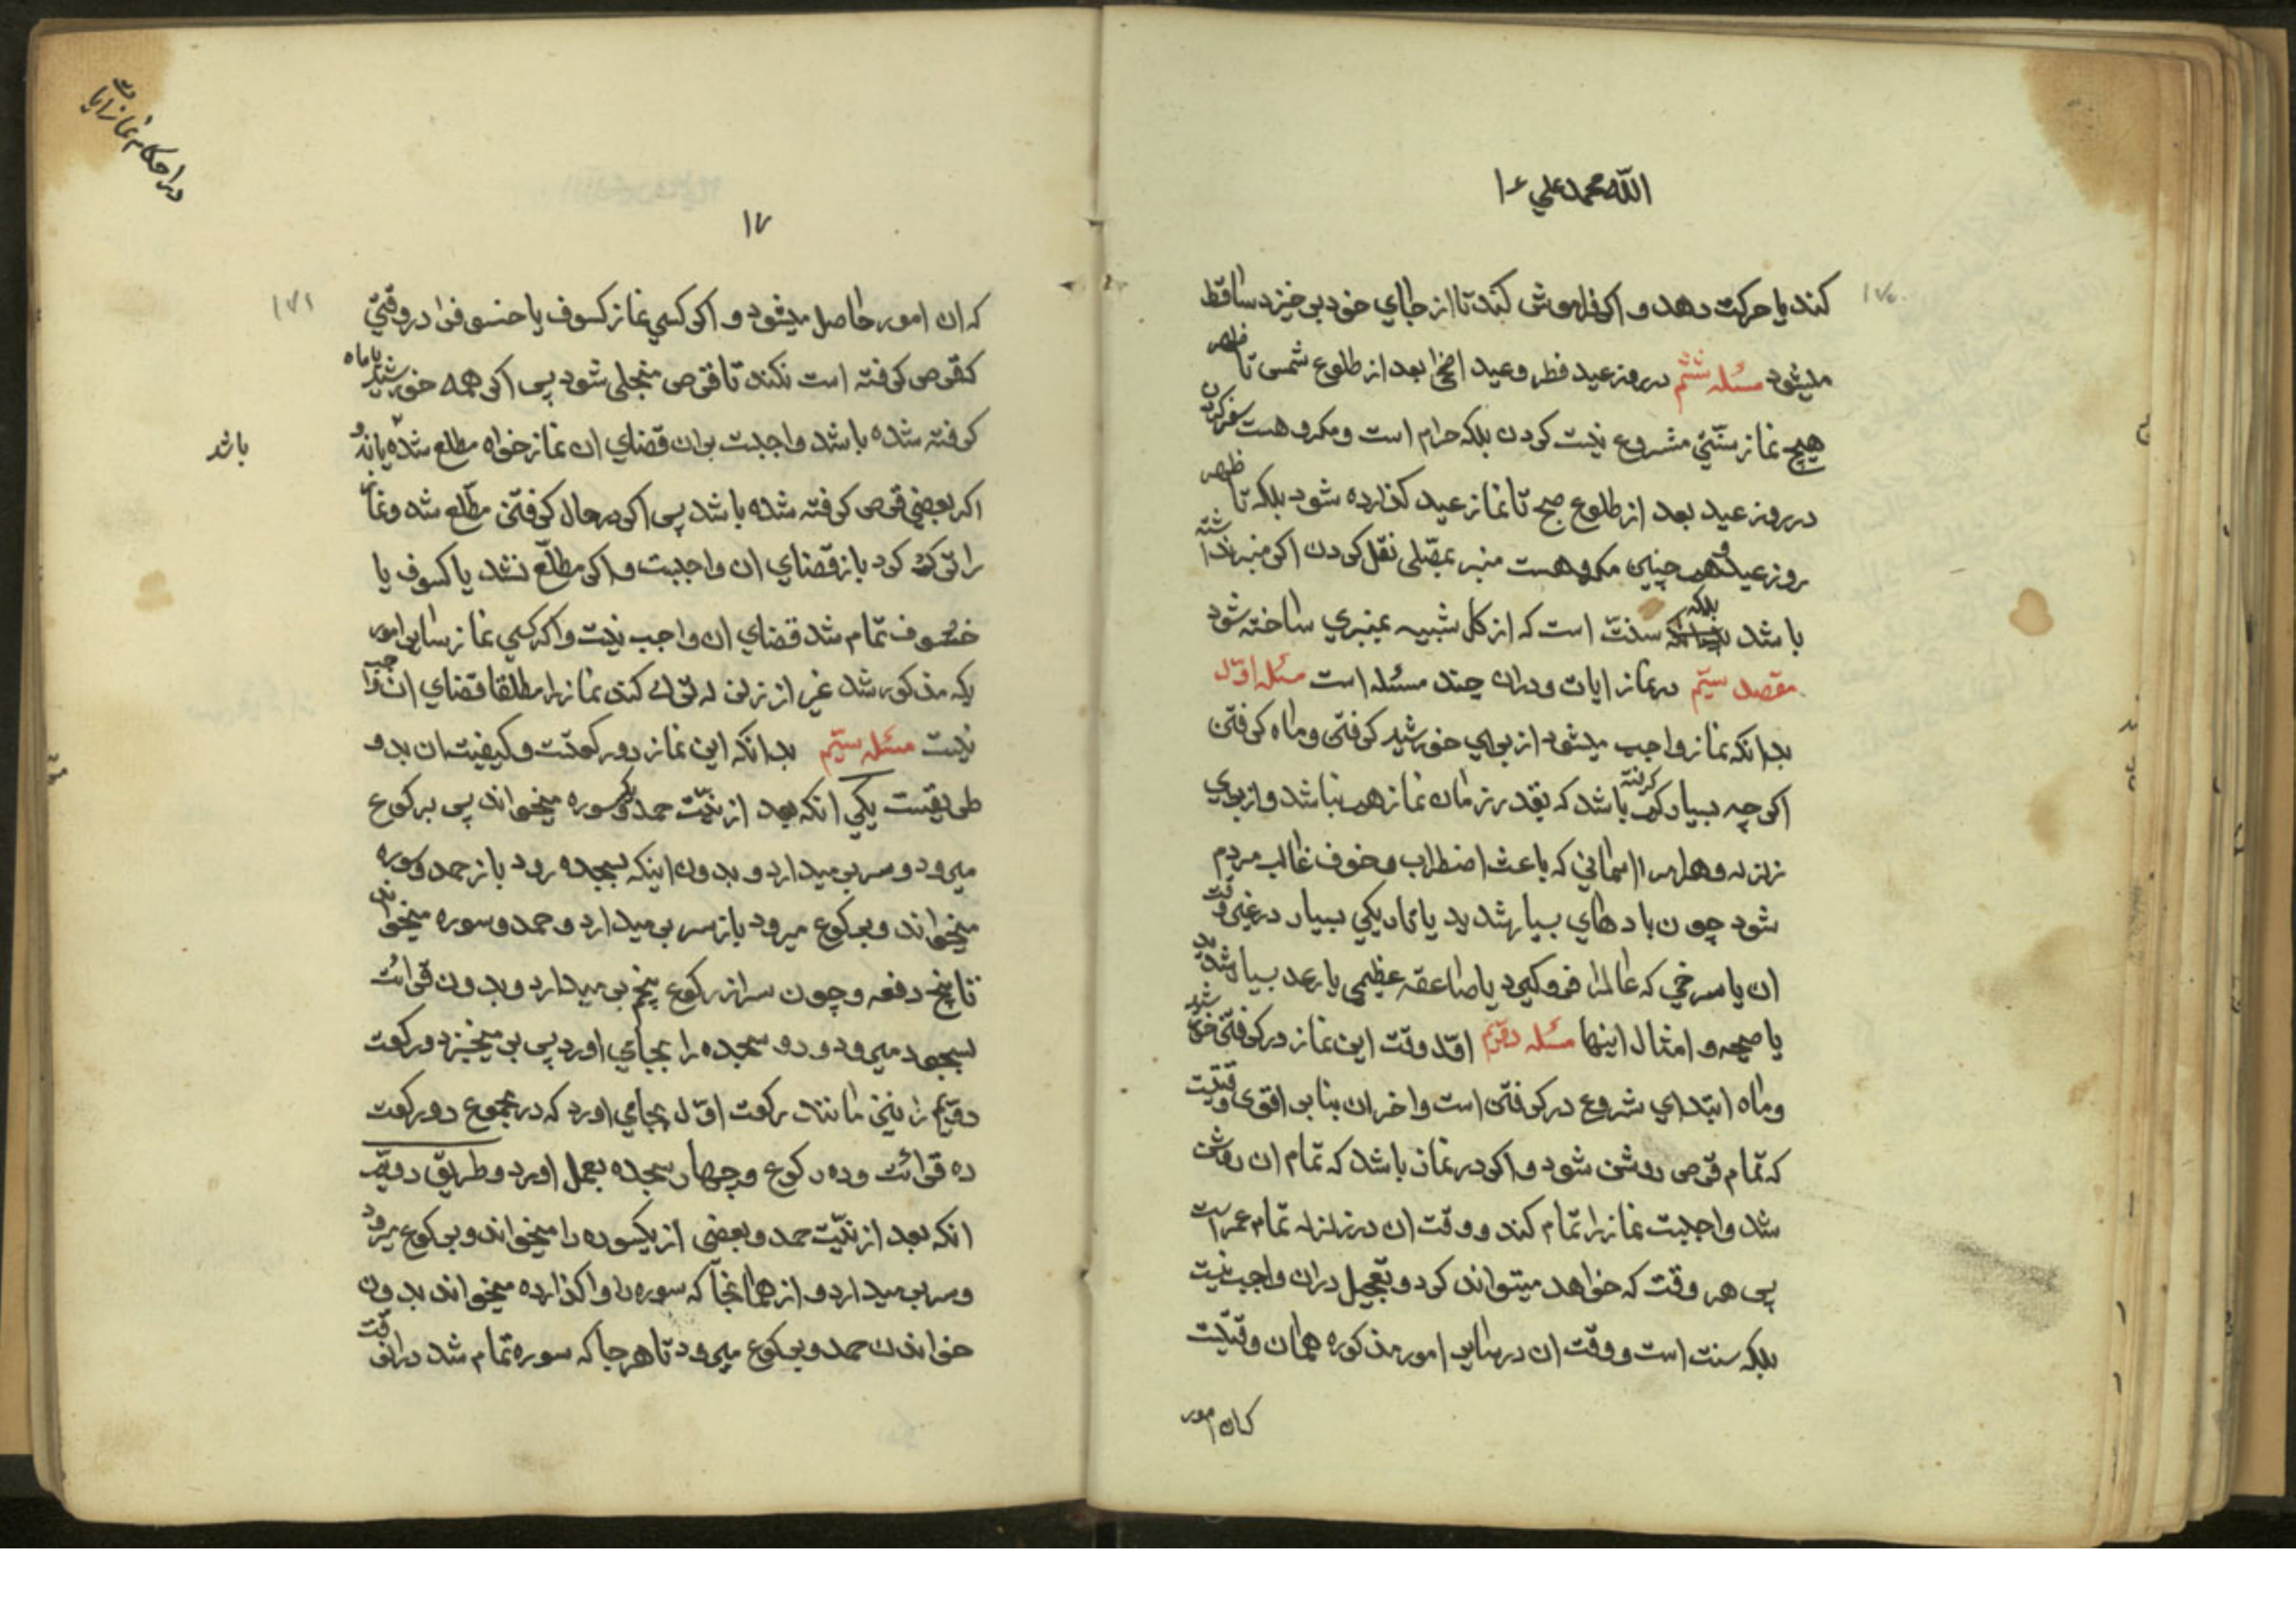 الله محمد علی ١
١٧٠
کند یا حرکت دهد و اکر فراموش کند تا از جای خود بر خیزد ساقط
میشود مسئله ششم در روز عید فطر و عید اضحی بعد از طلوع شمس تا ظهر
هیچ نماز سنتی مشروع نیست کردن بلکه حرام است و مکروهست سفر کردن
در روز عید بعد از طلوع صبح تا نماز عید کذارده شود بلکه تا ظهر
روز عید و هم چنین مکروهست منبر بمصلی نقل کردن اکر منبر نداشته
باشد بلکه سنت است که از کل شبیه بمنبری ساخته شود
مقصد سیم در نماز ایات و دران چند مسئله است مسئله اول
بدانکه نماز واجب میشود از برای خورشید کرفتن و ماه کرفتن
اکر چه بسیار کم کرفته باشد که بقدر زمان نماز هم نباشد و از برای
زلزله و هر امر اسمانی که باعث اضطراب و خوف غالب مردم
شود چون بادهای بسیار شدید یا تاریکی بسیار در غیر وقت
ان یا سرخی که عالم را فرو کیرد یا صاعقه عظیمی یا رعد بسیار شدید
یا صیحه و امثال اینها مسئله دویم اول وقت این نماز در کرفتن خورشید
و ماه ابتدای شروع در کرفتن است و اخر ان بنابر اقوی وقتیست
که تمام قرص روشن شود و اکر در نماز باشد که تمام ان روشن
شد واجبست نماز را تمام کند و وقت ان در زلزله تمام عمر است
پس هر وقت که خواهد میتواند کرد و تعجیل دران واجب نیست
بلکه سنت است و وقت ان در سایر امور مذکوره همان وقتیست
که ان امور
در احکام نماز ایات
١٧
١٧١
که ان امور حاصل میشود و اکر کسی نماز کسوف یا خسوف را در وقتی
که قرص کرفته است نکند تا قرص منجلی شود پس اکر همه خورشید یا ماه
کرفته شده باشد واجبست بران قضای ان نماز خواه مطلع شده یا نه و
باشد
اکر بعضی قرص کرفته شده باشد پس اکر در حال کرفتن مطلع شد و نماز
را ترک کرد باز قضای ان واجبست و اکر مطلع نشد یا کسوف یا
خسوف تمام شد قضای ان واجب نیست و اکر کسی نماز سایر امور
یکه مذکور شد غیر از زلزله ترک کند نماز را مطلقا قضای ان واجب
نیست مسئله سیم بدانکه این نماز دو رکعتست و کیفیت ان بدو
طریقست یکی انکه بعد از نیت حمد و یک سوره میخواند پس برکوع
میرود و سر بر میدارد و بدون اینکه بسجده رود باز حمد و سوره
میخواند و برکوع میرود باز سر بر میدارد و حمد و سوره میخواند
تا پنج دفعه و چون سر از رکوع پنجم بر میدارد و بدون قرائت
بسجود میرود و دو سجده را بجای اورد پس بر میخیزد و رکعت
دویم را نیز مانند رکعت اول بجا می اورد که در مجموع دو رکعت
ده قرائت و ده رکوع و چهار سجده بعمل اورد و طریق دویم
انکه بعد از نیت حمد و بعضی از یکسوره را میخواند و برکوع میرود
و سر بر میدارد و از همانجا که سوره را واکذارده میخواند بدون
خواندن حمد و برکوع میرود تا هر جا که سوره تمام شد در انوقت